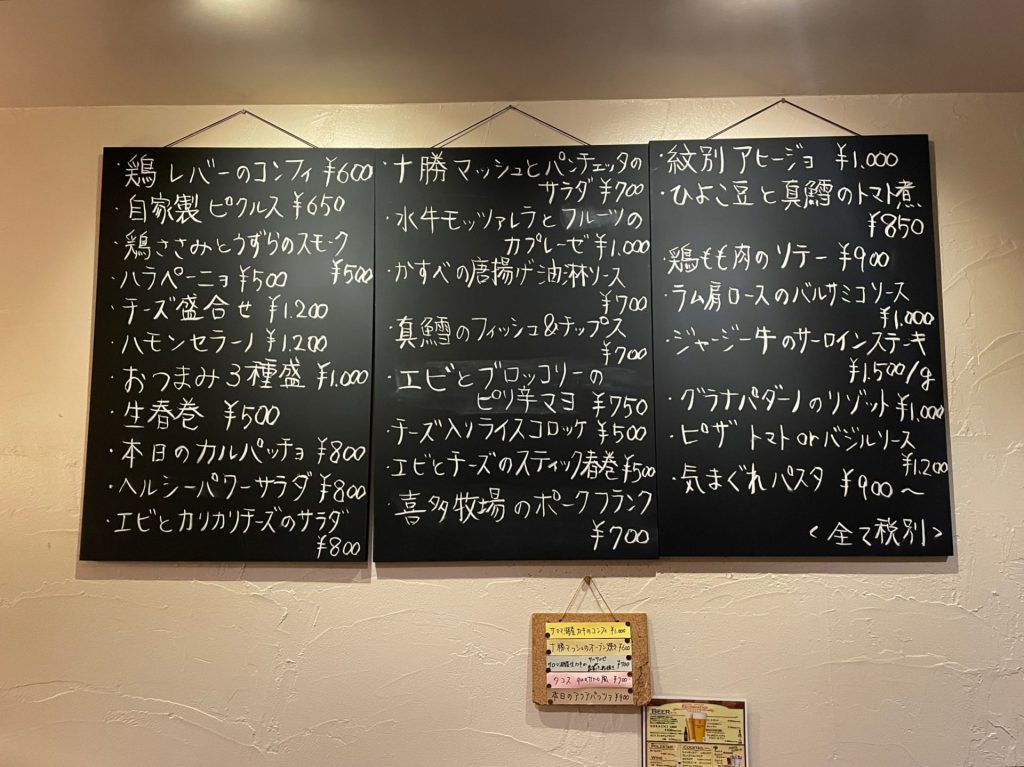 ・鶏レバーのコンフィ ¥600
・自家製ピクルス ¥650
・鶏ささみとうずらのスモーク
¥500
・ハラペーニョ ¥500
・チーズ盛合せ ¥1.200
・ハモンセラーノ ¥1.200
・おつまみ3種盛 ¥1.000
・生春巻 ¥500
・本日のカルパッチョ ¥800
・ヘルシーパワーサラダ ¥800
・エビとカリカリチーズのサラダ
¥800
・十勝マッシュとパンチェッタの
サラダ ¥700
・水牛モッツァレラとフルーツの
カプレーゼ ¥1.000
・かすべの唐揚げ油淋ソース
¥700
・真鱈のフィッシュ&チップス
¥700
・エビとブロッコリーの
ピリ辛マヨ ¥750
・チーズ入りライスコロッケ ¥500
・エビとチーズのスティック春巻 ¥500
・喜多牧場のポークフランク
¥700
・紋別アヒージョ ¥1.000
・ひよこ豆と真鱈のトマト煮
¥850
・鶏もも肉のソテー ¥900
・ラム肩ロースのバルサミコソース
¥1.000
・ジャージー牛のサーロインステーキ
¥1.500/g
・グラナパダーノのリゾット ¥1.000
・ピザ トマトorバジルソース
¥1.200
・気まぐれパスタ ¥900〜
<全て税別>
サロマ湖産カキのコンフィ ¥1.000
十勝マッシュのオーブン焼き ¥600
サロマ湖産生カキの
¥700
タコス ¥700
本日のアクアパッツァ ¥900
BEER
COCKTAIL
WINE